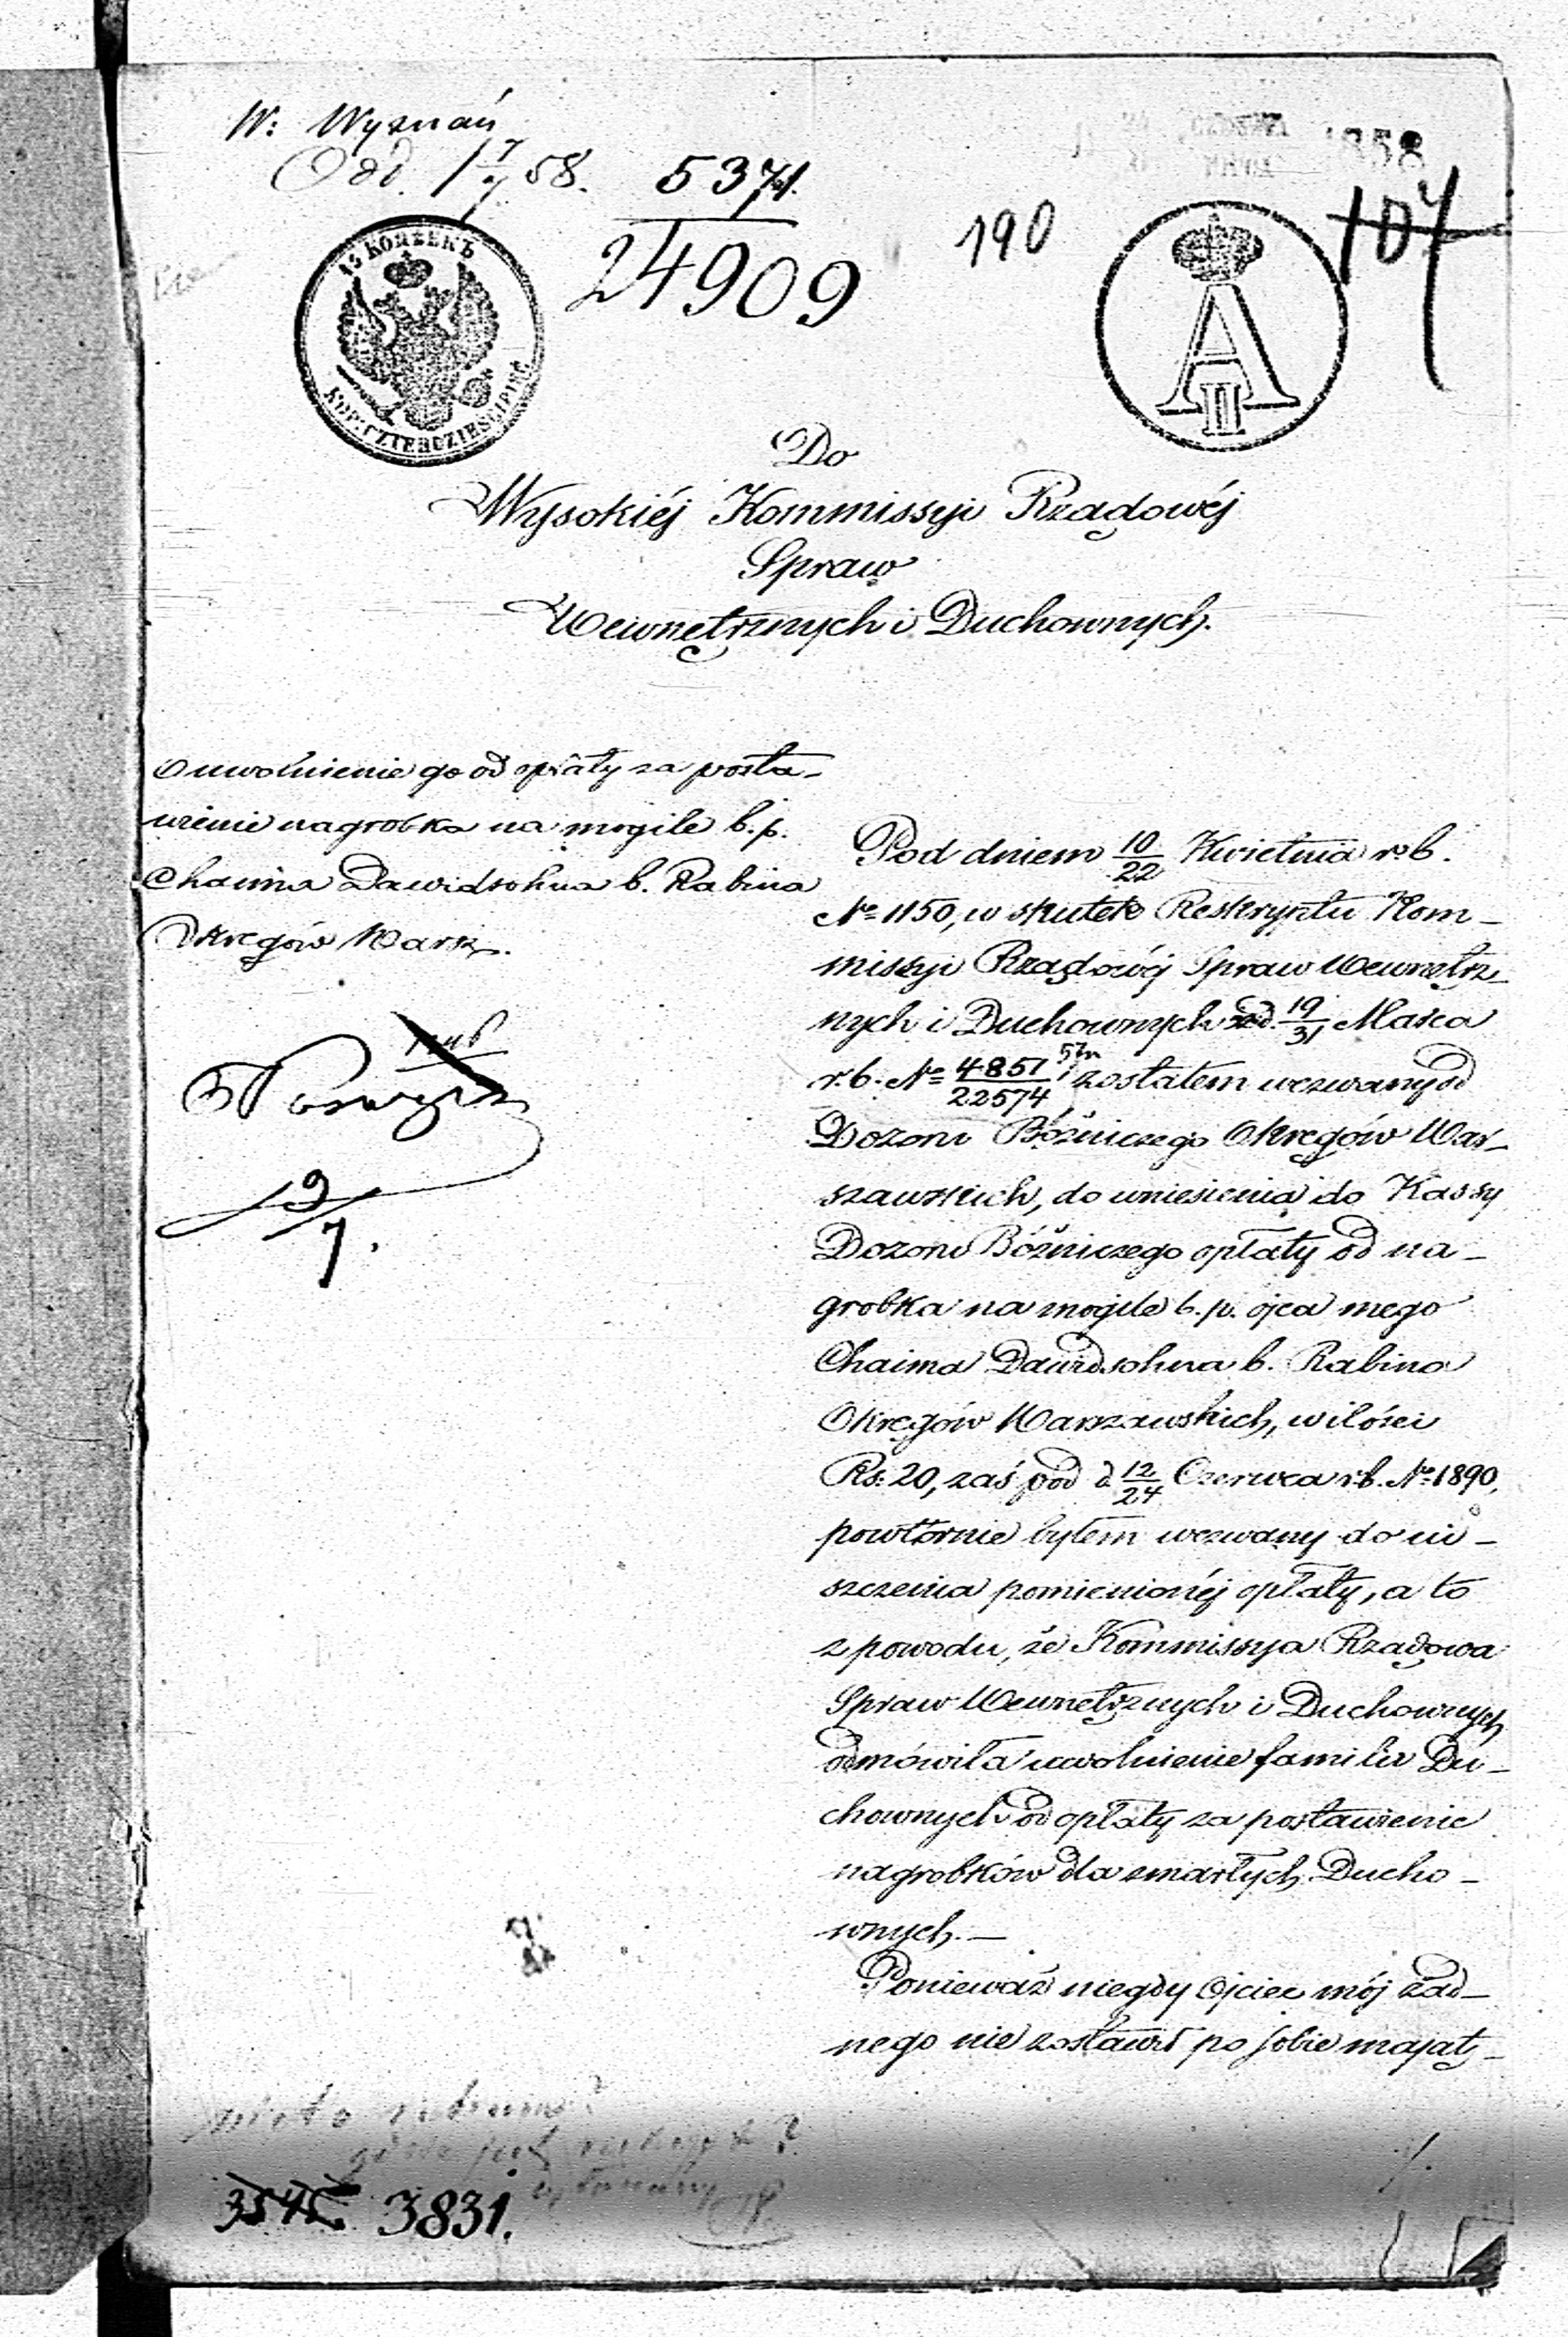 W: Wyznań
Odd. 1 7/7 58.
5371.
24909
190
1858
107
15 КОПѢЕКЪ
KOP: CZTERDZIEŚCI PIĘĆ
A II
Do
Wysokiéj Kommissyi Rządowéj
Spraw
Wewnętrznych i Duchownych.
O uwolnienie go od opłaty za posta-
wienie nagrobka na mogile b. p.
Chaima Dawidsohna b. Rabina
Okręgów Warsz.
9/7.
Pod dniem 10/22 Kwietnia r. b.
№ 1150, w skutek Reskryptu Kom-
missyi Rządowéj Spraw Wewnętrz-
nych i Duchownych z d. 19/31 Marca
r. b. № 4851/22574 zostałem wezwany od
Dozoru Bóżniczego Okręgów War-
szawskich, do wniesienia do Kassy
Dozoru Bóżniczego opłaty od na-
grobka na mogile b. p. ojca mego
Chaima Dawidsohna b. Rabina
Okręgów Warszawskich, w ilości
Rs: 20, zaś pod d 12/24 Czerwca r. b. № 1890,
powtórnie byłem wezwany do ui-
szczenia pomienionéj opłaty, a to
z powodu, że Kommissya Rządowa
Spraw Wewnętrznych i Duchownych
odmówiła uwolnienie familii Du-
chownych od opłaty za postawienie
nagrobków dla zmarłych Ducho-
wnych. —
Ponieważ niegdy Ojciec mój żad-
nego nie zostawił po sobie mająt-
3545 3831.